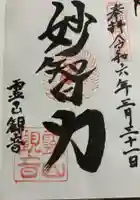 奉拝 令和六年三月三十一日
妙智力
霊山観音